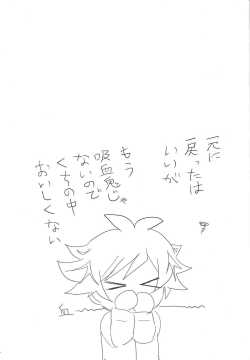 元に
戻ったは
いいが
もう
吸血鬼じゃ
ないので
くちの中
おいしくない
血